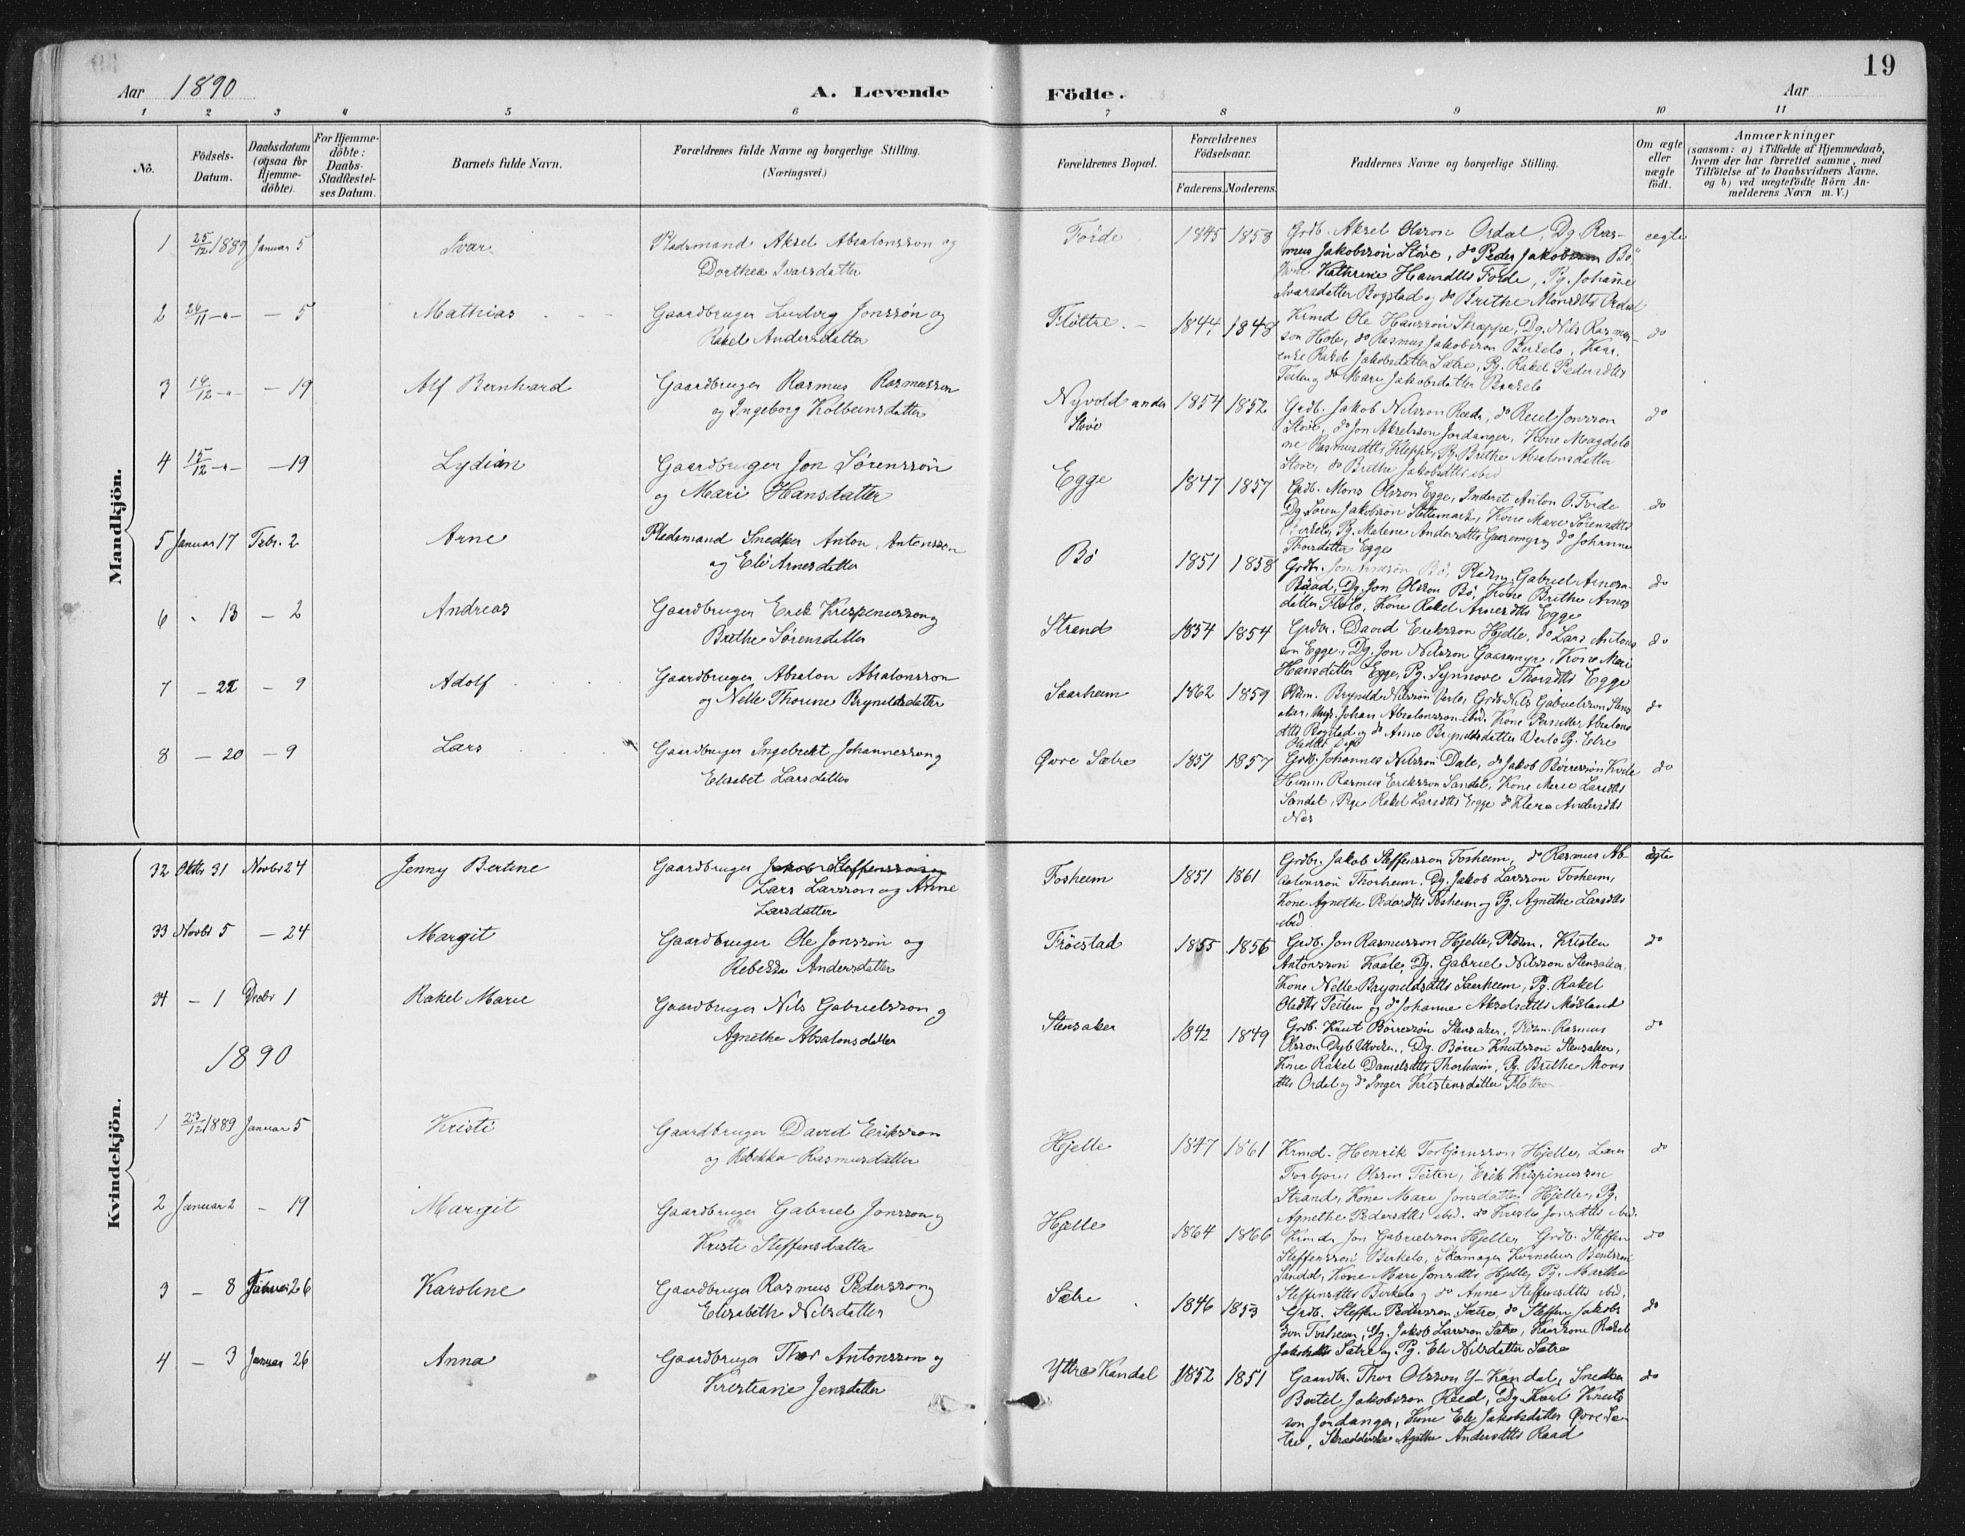 19
Aar 1890
A. Levende
Födte.
Aar
1 2 3 4 5 6 7 8 9 10 11
No.
Födsels-
Datum.
Daabsdatum
(ogsaa för
Hjemme-
döbte).
For Hjemme-
döbte:
Daabs-
Stadfæstel-
ses Datum.
Barnets fulde Navn.
Forældrenes fulde Navne og borgerlige Stilling.
(Næringsvei.)
Forældrenes Bopæl.
Forældrenes
Födselsaar.
Faderens. Moderens.
Faddernes Navne og borgerlige Stilling.
Om ægte
eller
uægte
födt.
Anmærkninger
(saasom: a) i Tilfælde af Hjemmedaab,
hvem der har forrettet samme, med
Tilföielse af to Daabsvidners Navne,
og b) ved uægtefödte Börn An-
melderens Navn m. V.)
Mandkjön.
1 25/12 1889 Januar 5 Ivar Pladsmand Aksel Absalonsson og
Dorthea Ivarsdatter
Förde 1845 1853 Grdb. Aksel Olsson Ordal, Dg. Ras-
mus Jakobsson Støve, do Peder Jakobsson Bö
Kone Kathrine Hansdtts Förde, Pg. Johanne
Ivarsdatter Bogstad og do Brithe Monsdtts Ordal
ægte
2 26/11 -"- - 5 Mathias Gaardbruger Ludvig Jonssön og
Rakel Andersdatter
Fløltre 1844 1848 Krmd Ole Hanssön Skrappe, Dg. Nils Rasmus-
son Hole, do Rasmus Jakobsson Birkelo, Kaar-
enke Rakel Jakobsdatter Sætre, Pg. Rakel Pedersdtts
Teiten og do Mari Jakobsdatter Birkelo
do
3 14/12 -"- - 19 Alf Bernhard Gaardbruger Rasmus Rasmusson
og Ingeborg Kolbeinsdatter
Nyvold under
Støve
1854 1852 Grdb. Jakob Nilsson Reed, do Reiel Jonsson
Støve, do Jon Akselsson Jordanger, Kone Magdele
ne Rasmusdtts Kleppe, Pg. Brithe Absalonsdatter
Støve, do Brithe Jakobsdtts ibid
do
4 15/12 -"- - 19 Lydian Gaardbruger Jon Sørenssön
og Mari Hansdatter
Egge 1847 1857 Grdb. Mons Olsson Egge, Inderst Anton O. Förde
Dg. Søren Jakobsön Slettemark, Kone Mari Sørensdtts
Birkelo, Pg. Malene Andersdtts Gaasemyr og do Johanne
Thorsdatter Egge
do
5 Januar 17 Febr. 2 Arne Pladsmand Snedker Anton Antonsson
og Eli Arnesdatter
Bö 1851 1858 Grdbr. Bö, Pldsm. Gabriel Arnesn
Raad, Dg. Jon Olsson Bö, Kone Brithe Arnes
datter Flölo, Kone Rakel Arnesdtts Egge
do
6 " 13 - 2 Andreas Gaardbruger Erik Krispinusson og
Brithe Sørensdatter
Strand 1854 1854 Grdbr. David Eriksson Hjelle, do Lars Antons
son Egge, Dg. Jon Nilsson Gaasemyr, Kone Mari
Hansdatter Egge, Pg. Synnove Thorsdtts Egge
do
7 - 22 - 9 Adolf Gaardbruger Absalon Absalonsson
og Nelle Thorine Bryneldsdatter
Saarheim 1862 1859 Pldsm. Bryneld Nilssön Verlo, Grdb. Nils Gabrielsson Stens
aker, Ungk. Johan Absalonsson ibid, Kone Pernille Absalons
dtts Rogstad og do Anne Bryneldsdatter Verlo Pg. Else
do
8 - 20 - 9 Lars Gaardbruger Ingebrekt Johannesson og
Elisabet Larsdatter
Øvre Sætre 1851 1857 Grdb. Johannes Nilsson Dale, do Jakob Börressön Kvile
Husm. Rasmus Eriksson Sandal, Kone Marie Larsdtts
Sandal, Pige Rakel Larsdtts Egge do Klara Andersdtts
Nes
do
Kvindekjön.
32 Oktbr 31 Novbr 24 Jenny Bertine Gaardbruger Jakob Steffenssön og
Lars Larsson og Anne
Larsdatter
Fosheim 1851 1861 Grdbr. Jakob Steffensson Fosheim, do Rasmus Ab-
salonssön Thorheim, Dg. Jakob Larsson Fosheim,
Kone Agnethe Pedersdtts Fosheim og Pg. Agnethe Larsdtts
ibid
ægte
33 Novbr 5 - 24 Margit Gaardbruger Ole Jonssön og
Rebekka Andersdatter
Fröistad 1855 1856 Grdb. Jon Rasmusson Hjelle, Pldsm. Kristen
Antonsson Kaale, Dg. Gabriel Nilsson Stensaker,
Kone Nelle Bryneldsdtts Saarheim, Pg. Rakel
Olsdtts Teiten og do Johanne Absalsdtts Mosland
do
34 - 1 Decbr 1 Rakel Marie Gaardbruger Nils Gabrielsson og
Agnethe Absalonsdatter
Stensaker 1842 1849 Grdb. Knut Börressön Stensaker, Pldsm. Rasmus
Olsson Dyb Utviken, Dg. Börre Knutssön Stensaker,
Kone Rakel Danielsdtts Thorheim, Pg. Brithe Mons
dtts Ordal og do Inger Kristensdatter Flöttre
do
1890
1 23/12 1889 Januar 5 Kristi Gaardbruger David Eriksson
og Rebekka Rasmusdatter
Hjelle 1847 1861 Krmd. Henrik Torbjörnsson Hjelle, Lærer
Torbjörn Olsson Teiten, Erik Krispinusson
Strand, Kone Mari Jonsdatter Hjelle, Pg.
Agnethe Pedersdtts ibid. do Kristi Jonsdtts ibid.
do
2 Januar 2 - 19 Margit Gaardbruger Gabriel Jonsson og
Kristi Steffensdatter
Hjelle 1864 1866 Krmd. Jon Gabrielsson Hjelle, Grdb. Steffen
Steffenssön Birkelo, Skomager Kornelius Bentsson
Sandal, Kone Mari Jonsdtts Hjelle, Pg. Marthe
Steffensdtts Birkelo og do Anne Steffensdtts ibid.
do
3 - 8 Januar 26 Karoline Gaardbruger Rasmus Pedersson og
Elisabeth Nilsdatter
Sætre 1846 1853 Grdb. Steffen Pedersson Sætre, do Steffen Jakobs
son Fosheim, Dg. Jakob Larsson Sætre, Kaarkone Rakel
Jakobsdtts Sætre og Pg. Eli Nilsdatter Sætre
do
4 - 3 Januar 26 Anna Gaardbruger Thor Antonsson og
Kristiane Jensdatter
Yttre Kandal 1852 1851 Gaardbr. Thor Olsson Y- Kandal, Snedker
Bertel Jakobsson Reed, Dg. Karl Knuts
son Jordanger, Kone Eli Jakobsdatter Øvre Sæ
tre, Skrædderske Agathe Andersdtts Raad
do